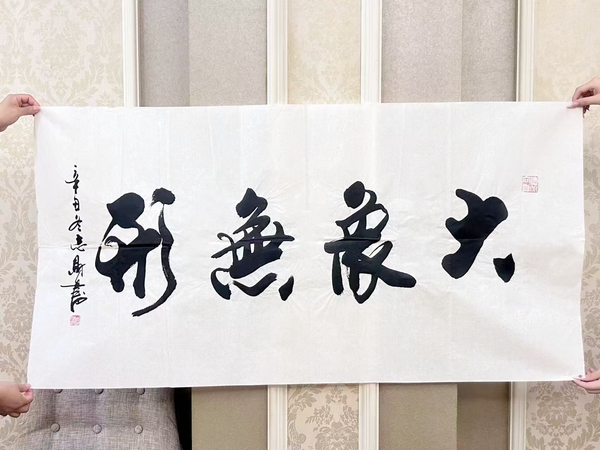 大象無形
辛丑冬志財書